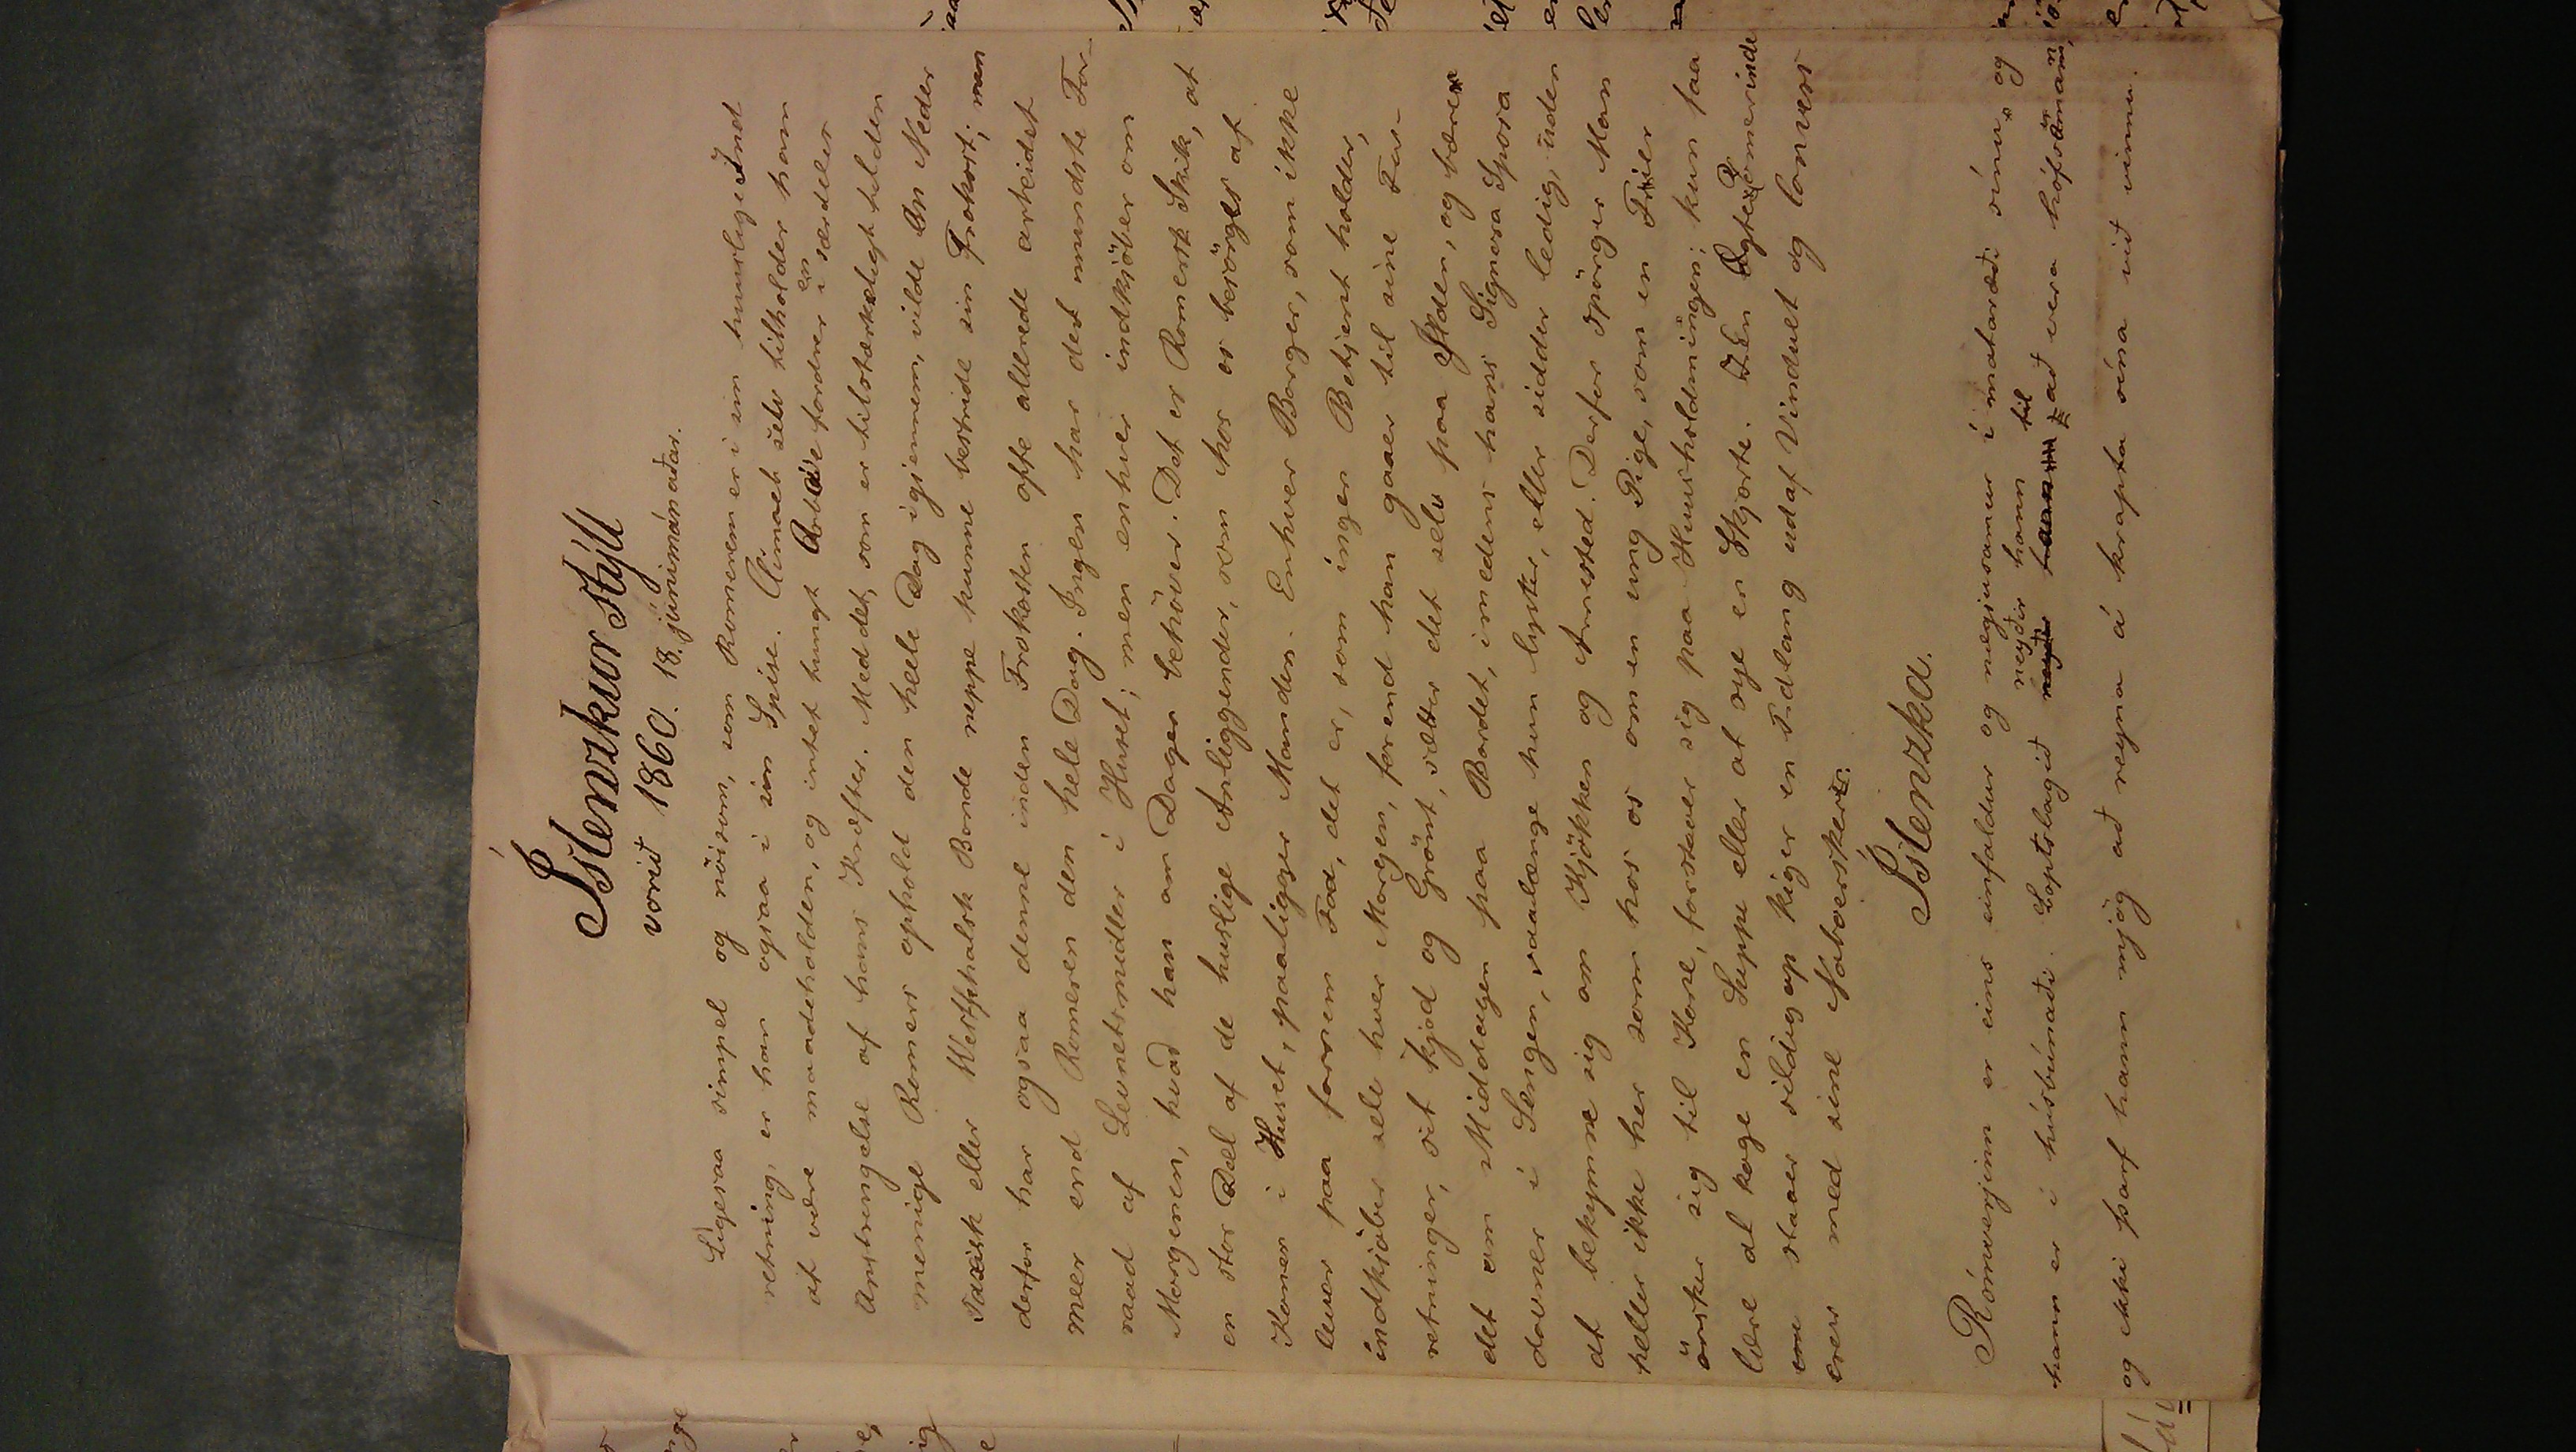 Íslenzkur stýll
vorið 1860. 18. júnímánaðar.
Ligesaa simpel og nöisom, som Romeren er i sin huuslige Ind
retning, er han ogsaa i sin Spise. Climaet selv tilholder ham
at være maadeholden, og intet tungt Arbeide fordrer en særdeles
Anstrengelse af hans Kræfter. Meddet, som er tilstrækkeligt til den
menige Romers ophold den heele Dag igjennem, vilde en Neder
Saxisk eller Westphalsk Bonde neppe kunne bestride sin Frokost; men
derfor har ogsaa denne inden Frokosten ofte allerede arbeidet
meer end Romeren den hele Dag. Ingen har det mindste For-
raad af Levnetsmidler i Huset; men enhver indkjöber om
Morgenen, hvad han om Dagen behöver. Det er Romersk Skik, at
en stor Deel af de huslige Anliggender, som hos os besörges af
Konen i Huset, paaligger Manden. Enhver Borger, som ikke
lever paa fornem Fod, det er, som ingen Betjent holder,
indkjöber selv hver Morgen, forend han gaaer til sine For-
retninger, sit Kjöd og Grönt, sætter det selv paa Ilden, og bærer
det om Middagen paa Bordet, imedens hans Signora Sposa
dovner i Sengen, saalænge hun lyster, eller sidder ledig, uden
at bekymre sig om Kjökken og Arnested. Derfor spörger Man
heller ikke her som hos os om en ung Pige, som en Frier
önsker sig til Kone, forstaaer sig paa Huusholdningen; kun faa
lære at koge en Suppe eller at sye en Skjorte. Den Romerinde
staaer sildig op kiger en Tidlang ud af Vinduet og converse
rer med sine Naboersker.
Íslenzka.
Rómverjinn er eins einfaldur og nægjusamur í mataræði sínu, og
hann er í húsbúnaði. Loptslagið neyðir hann til að vera hófsamann,
og ekki þarf hann mjög að reyna á krapta sína við vinnu.